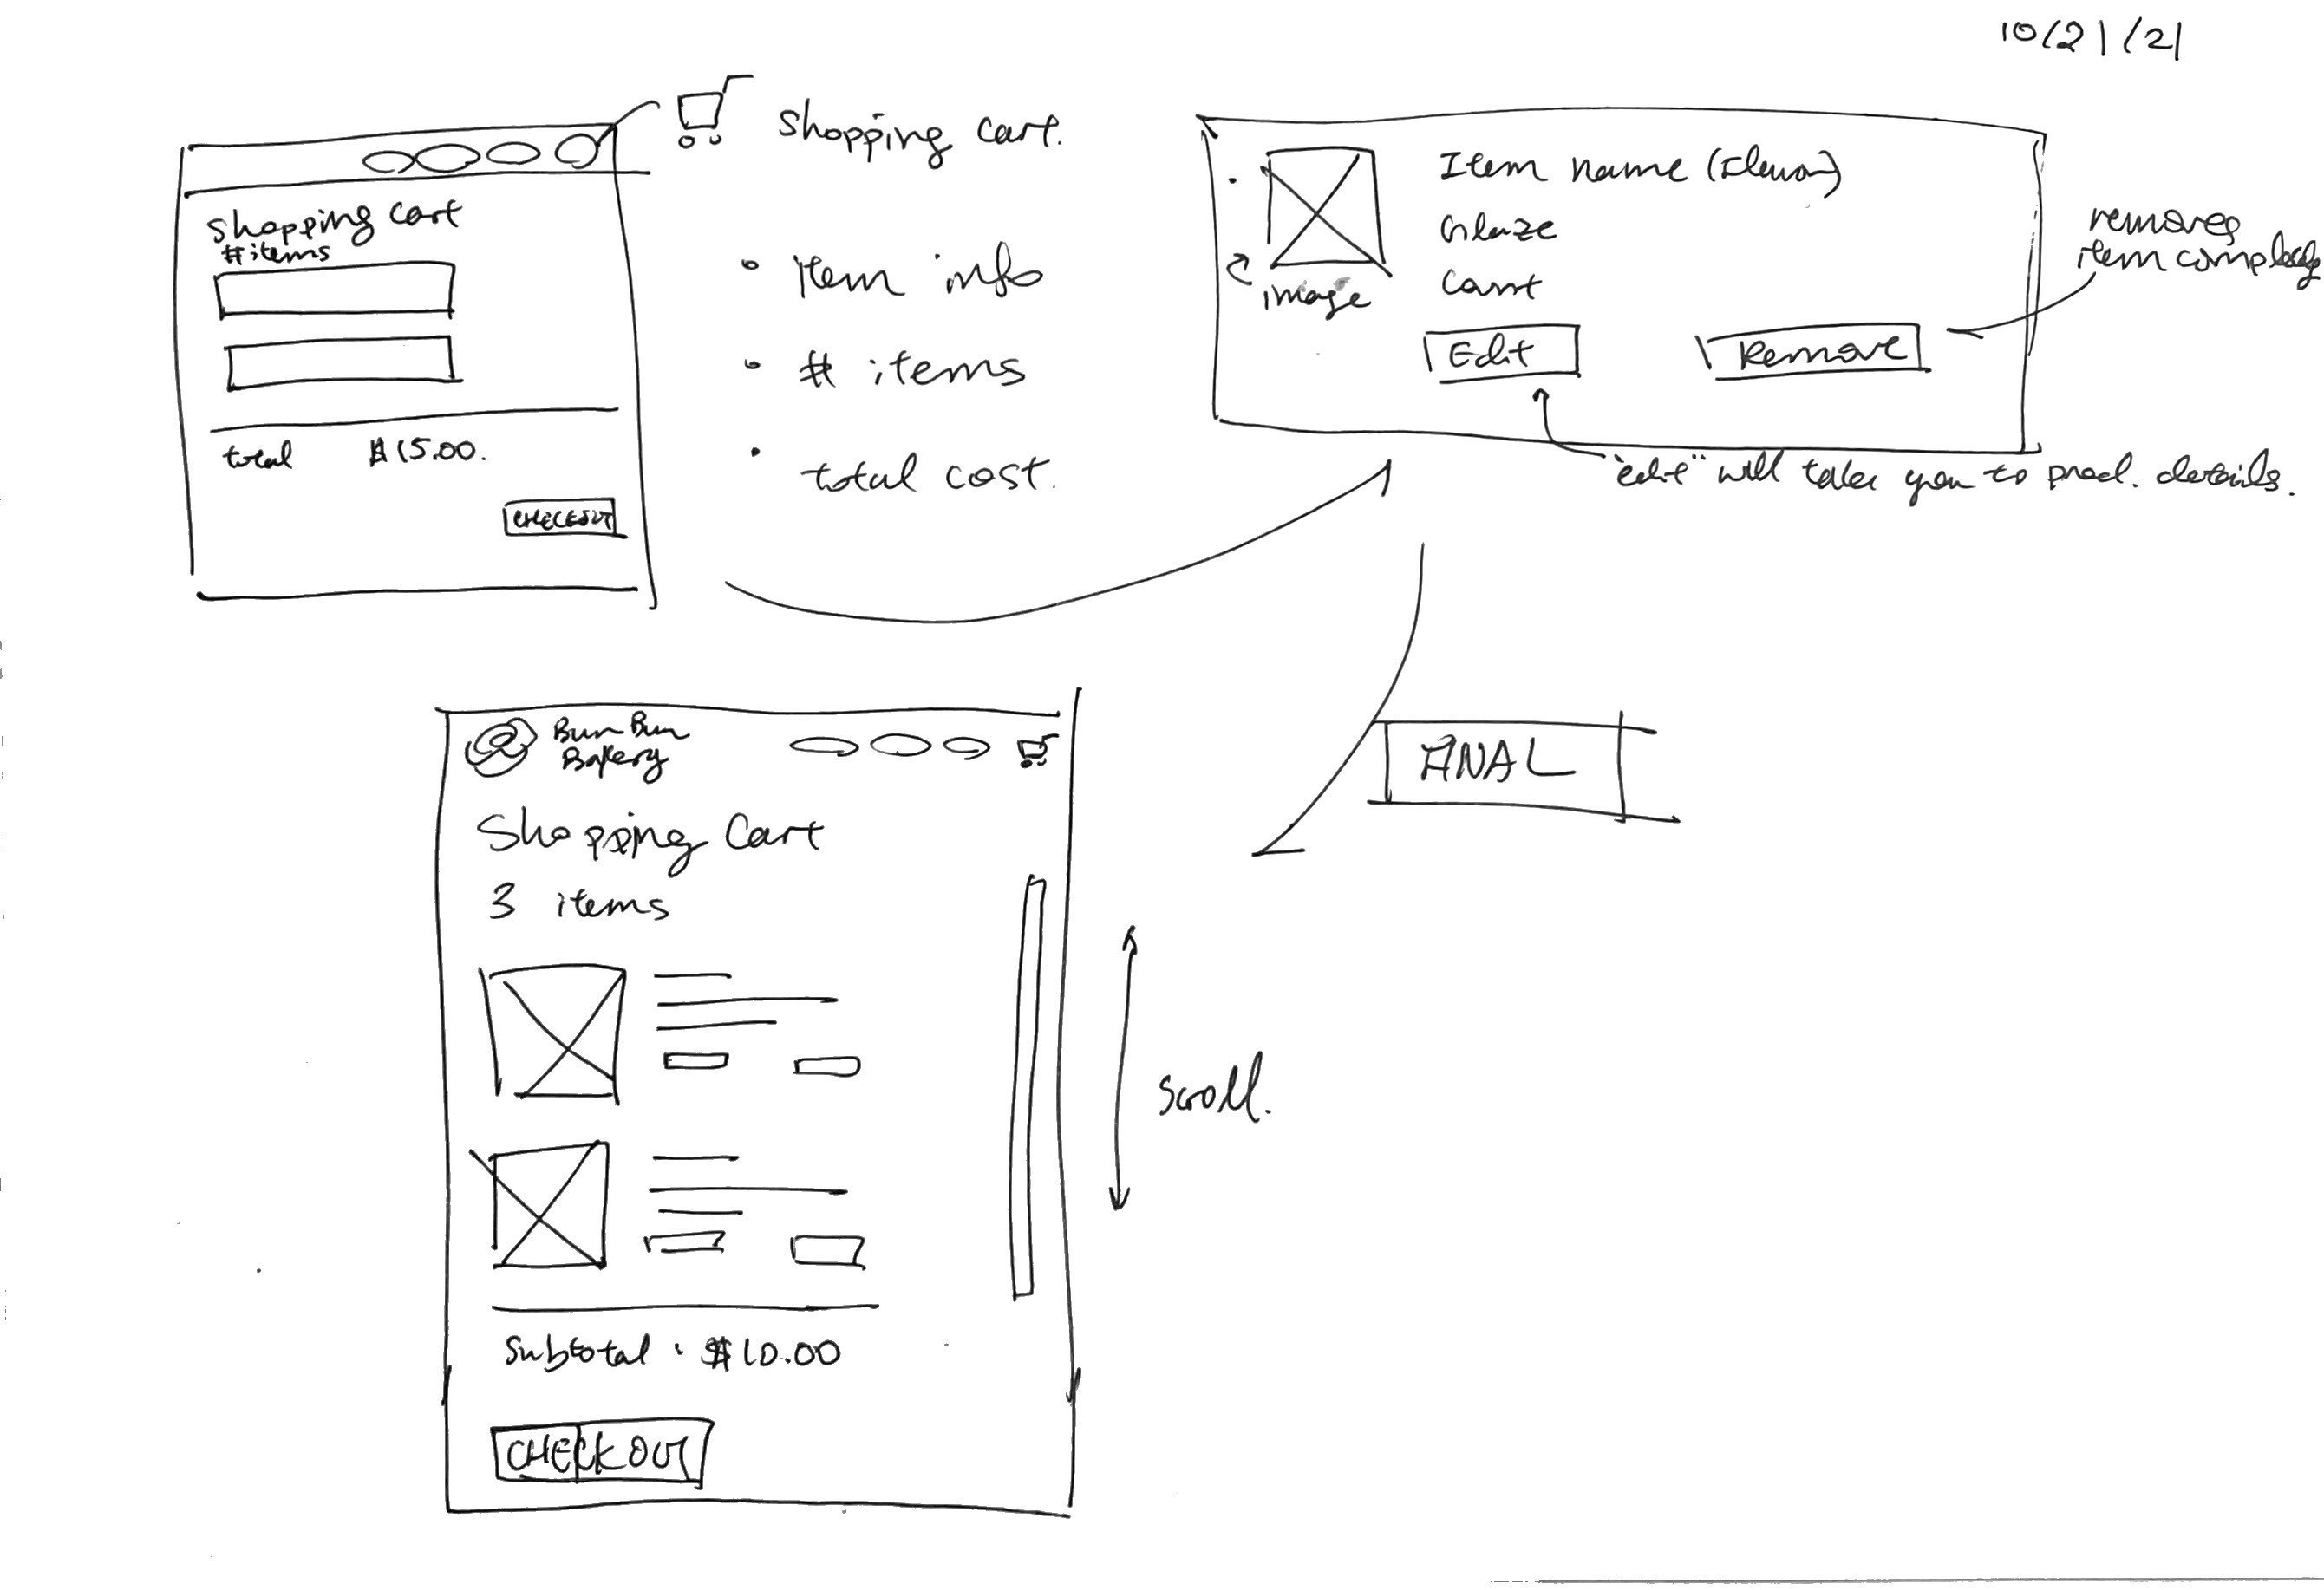 10/21/21
shopping cart.
shopping cart
# items
total $15.00.
CHECKOUT
• item info
• # items
• total cost.
Item name (Flavor)
Glaze
image
Edit
Remove
removes
item completely
"edit" will take you to prod. details.
FINAL
Bun Bun
Bakery
Shopping Cart
3 items
Subtotal : $10.00
CHECKOUT
scroll.